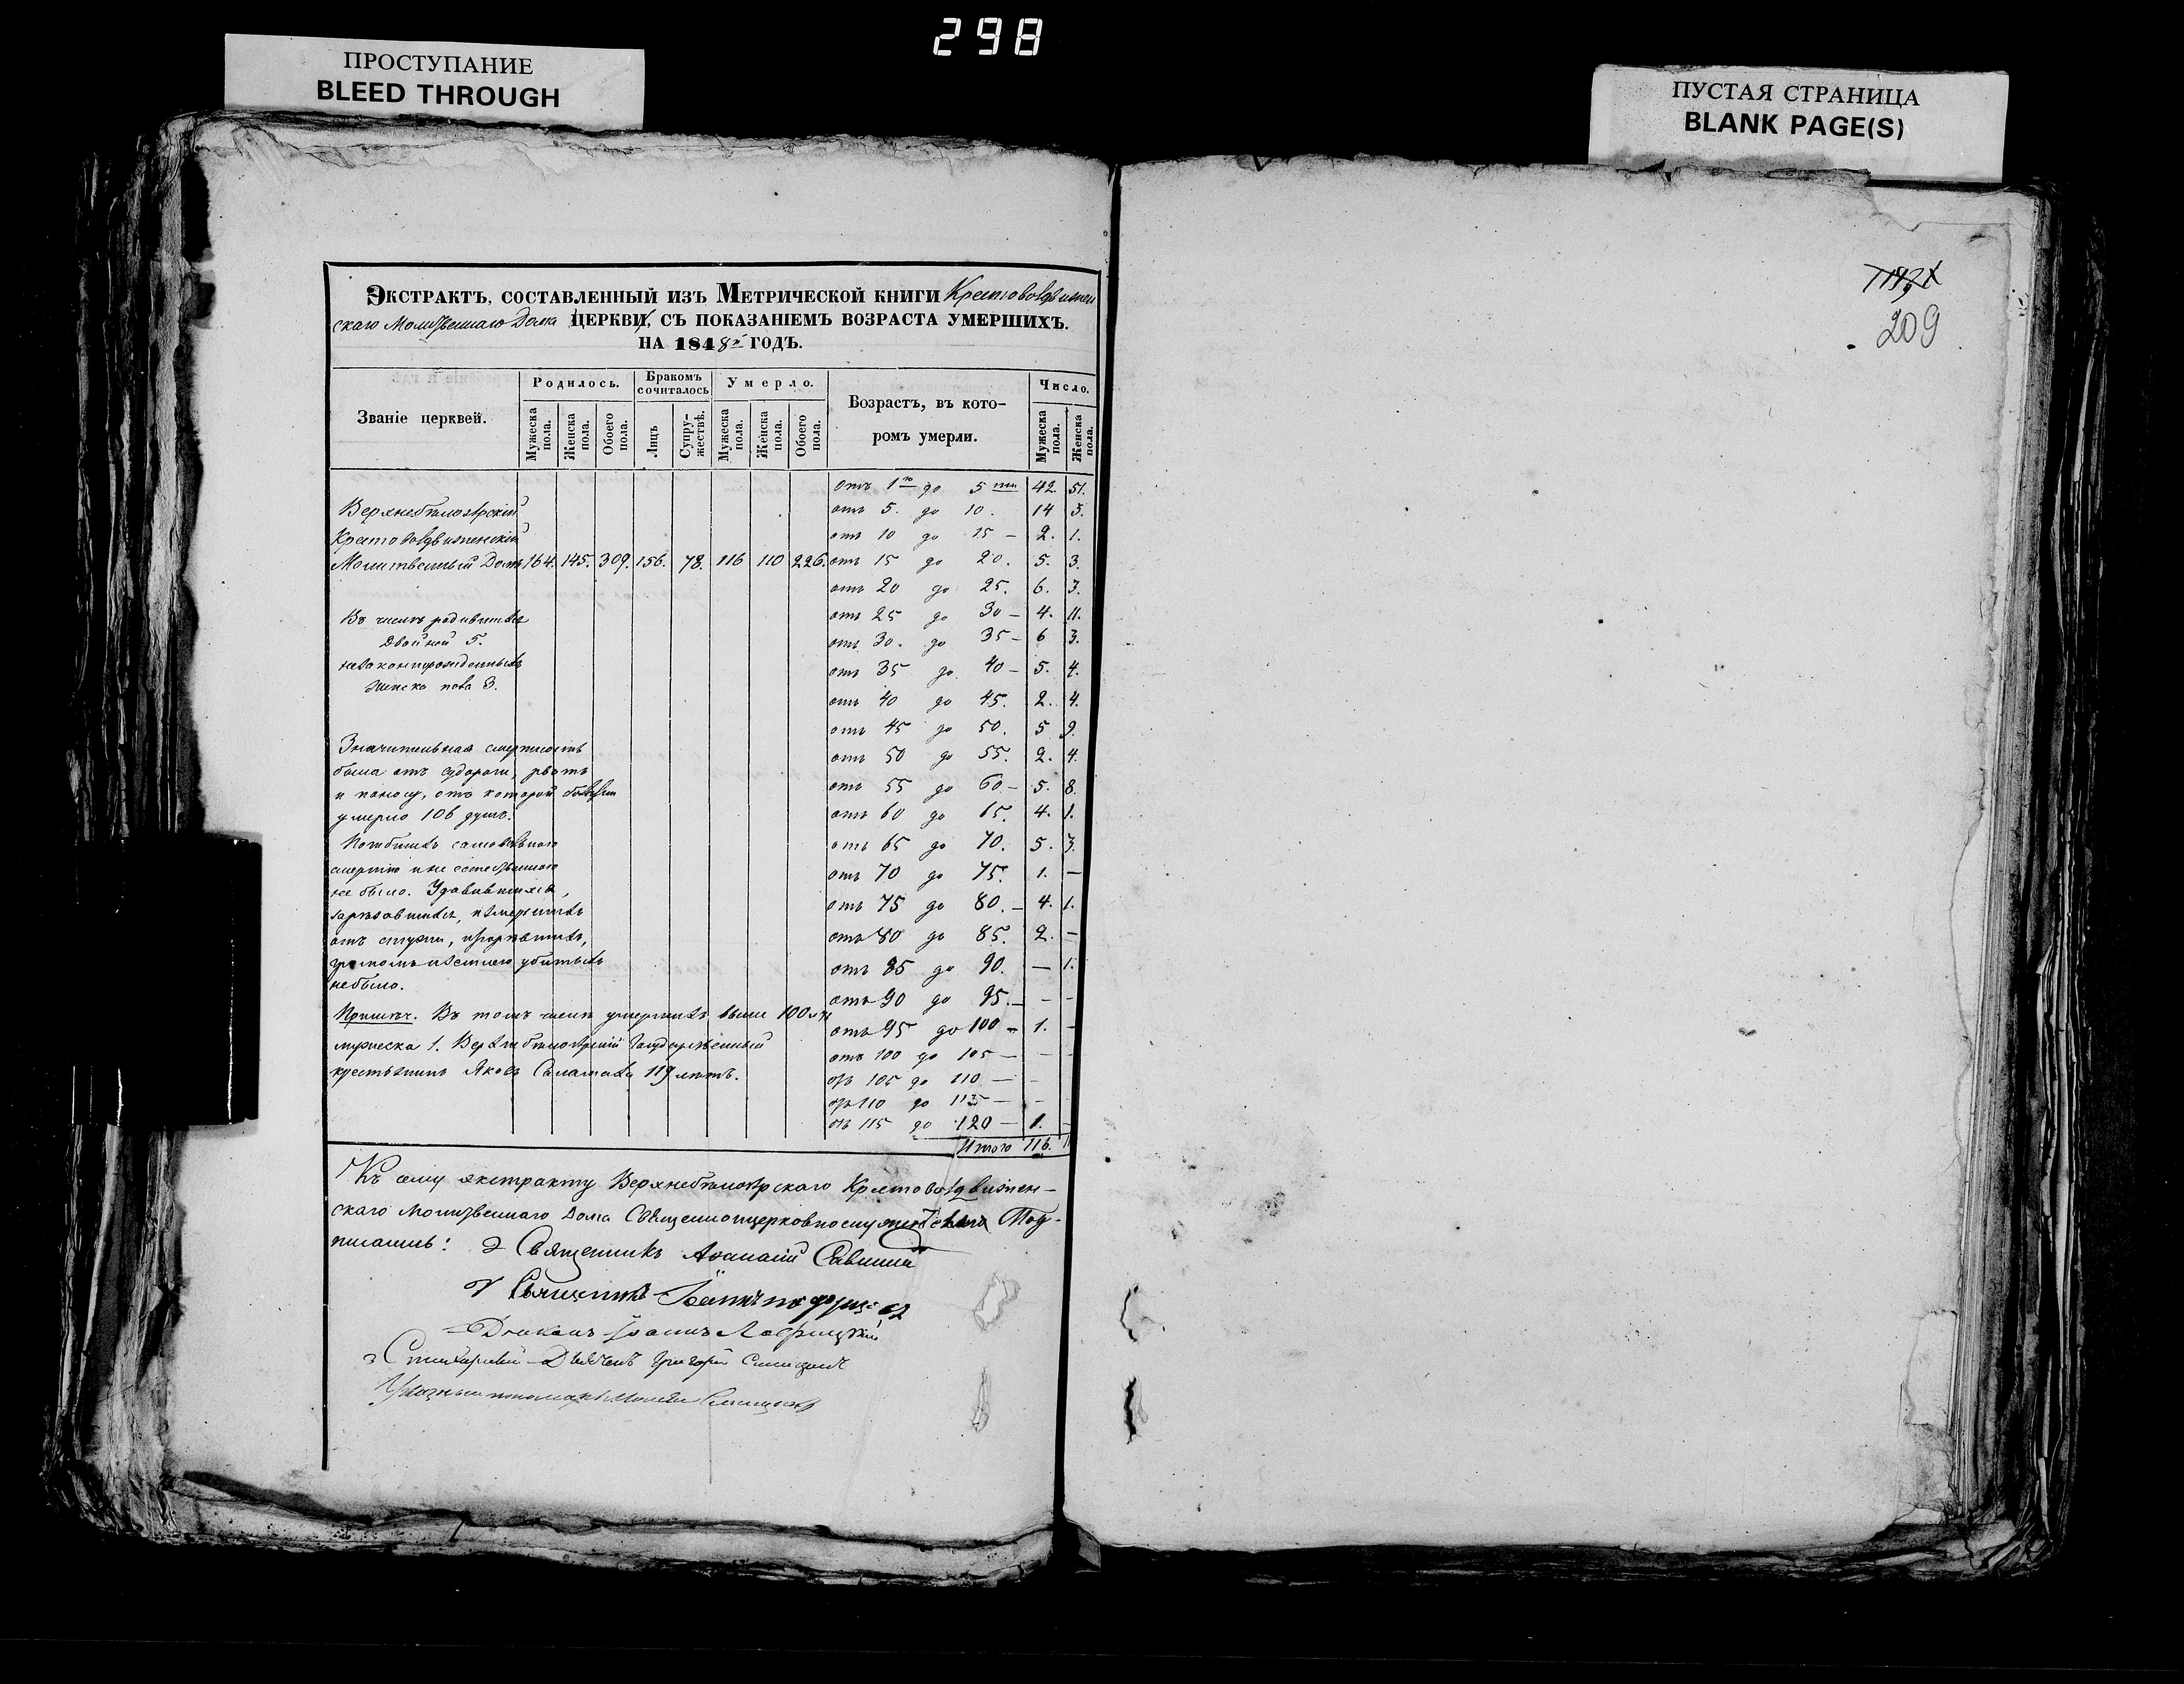 298
ПРОСТУПАНИЕ
BLEED THROUGH
ПУСТАЯ СТРАНИЦА
BLANK PAGE(S)
209
Экстрактъ, составленный изъ Метрической книги Крестовоздвижен
скаго Молитвеннаго Дома церкви, съ показаніемъ возраста умершихъ.
на 1848й годъ.
Званіе церквей.
Родилось.
Бракомъ сочиталось
Умерло.
Возрастъ, въ кото-
ромъ умерли.
Число.
Мужеска пола.
Женска пола.
Обоего пола.
Лицъ
Супру-жествъ.
Мужеска пола.
Женска пола.
Обоего пола.
Мужеска пола.
Женска пола.
отъ 1го до 5 42. 51.
Верхнебѣлозѣрскій
отъ 5. до 10. 14 3.
Крестовоздвиженскій
отъ 10 до 15 – 2. 1.
Молитвенный Домъ 164. 145. 309. 156. 78. 116 110 226. отъ 15 до 20. 5. 3.
отъ 20 до 25. 6. 3.
Въ числѣ родившихся
отъ 25 до 30 – 4. 11.
Двойней 5.
отъ 30. до 35 – 6 3.
незаконнорожденныхъ
отъ 35 до 40 – 5. 4.
женска пола 3.
отъ 40 до 45. 2. 4.
отъ 45 до 50. 5 9.
Значительная смертность
отъ 50 до 55. 2. 4.
была отъ судороги, рвоты
и поносу, отъ которой болѣзни
отъ 55 до 60 – 5. 8.
умерло 106 душъ.
отъ 60 до 65. 4. 1.
Погибшихъ самовольною
отъ 65 до 70. 5. 3.
смертію и не естественною
отъ 70 до 75. 1. –
не было. Удавившихся,
зарѣзавшихся, измерзшихъ
отъ 75 до 80. – 4. 1.
отъ стужи,
отъ 80 до 85. 2. –
громомъ убитыхъ
отъ 85 до 90. – 1.
небыло.
отъ 90 до 95. – – –
Примѣч. Въ томъ числѣ умершихъ выше 100 лѣтъ
отъ 95 до 100 – 1. –
мужеска 1. Верхнебѣлозѣрскій Государственный
отъ 100 до 105 – – –
крестьянинъ Яковъ 119 лѣтъ.
отъ 105 до 110 – –
отъ 110 до 115 – –
отъ 115 до 120 – 1. –
Итого 116.
Къ сему экстракту Верхнебѣлозѣрскаго Крестовоздвижен-
скаго Молитвеннаго Дома Священноцерковнослужители Под-
писались: Священникъ Аѳанасій Савинскій
Священникъ
Діаконъ Іоаннъ
Стихарный Дьячекъ Григорій
Указный пономарь